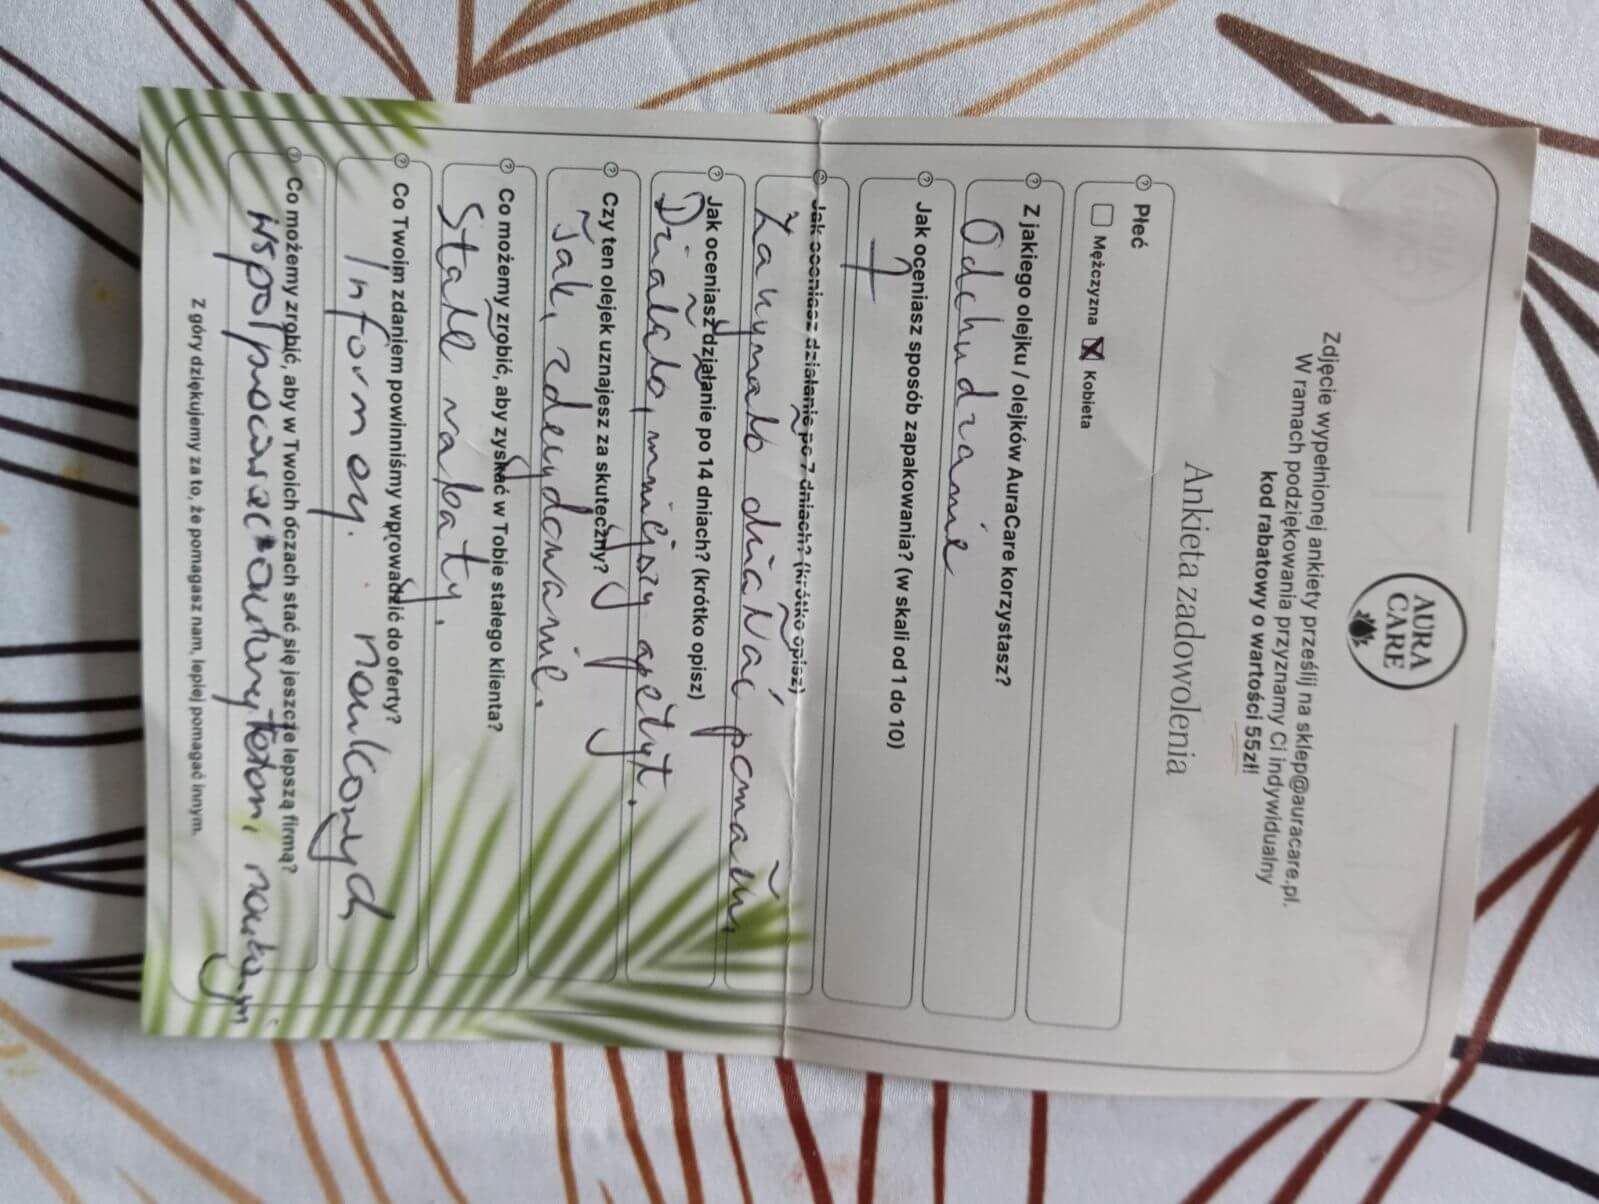 AURA
CARE
Zdjęcie wypełnionej ankiety prześlij na sklep@auracare.pl.
W ramach podziękowania przyznamy Ci indywidualny
kod rabatowy o wartości 55zł!
Ankieta zadowolenia
Płeć
Mężczyzna Kobieta
Z jakiego olejku / olejków AuraCare korzystasz?
Odchudzanie
Jak oceniasz sposób zapakowania? (w skali od 1 do 10)
7
Jak oceniasz działanie po 7 dniach? (krótko opisz)
działać pomału
Jak oceniasz działanie po 14 dniach? (krótko opisz)
Działało, mniejszy apetyt.
Czy ten olejek uznajesz za skuteczny?
Tak, zdecydowanie.
Co możemy zrobić, aby zyskać w Tobie stałego klienta?
Stałe rabaty.
Co Twoim zdaniem powinniśmy wprowadzić do oferty?
Co możemy zrobić, aby w Twoich oczach stać się jeszcze lepszą firmą?
Z góry dziękujemy za to, że pomagasz nam, lepiej pomagać innym.